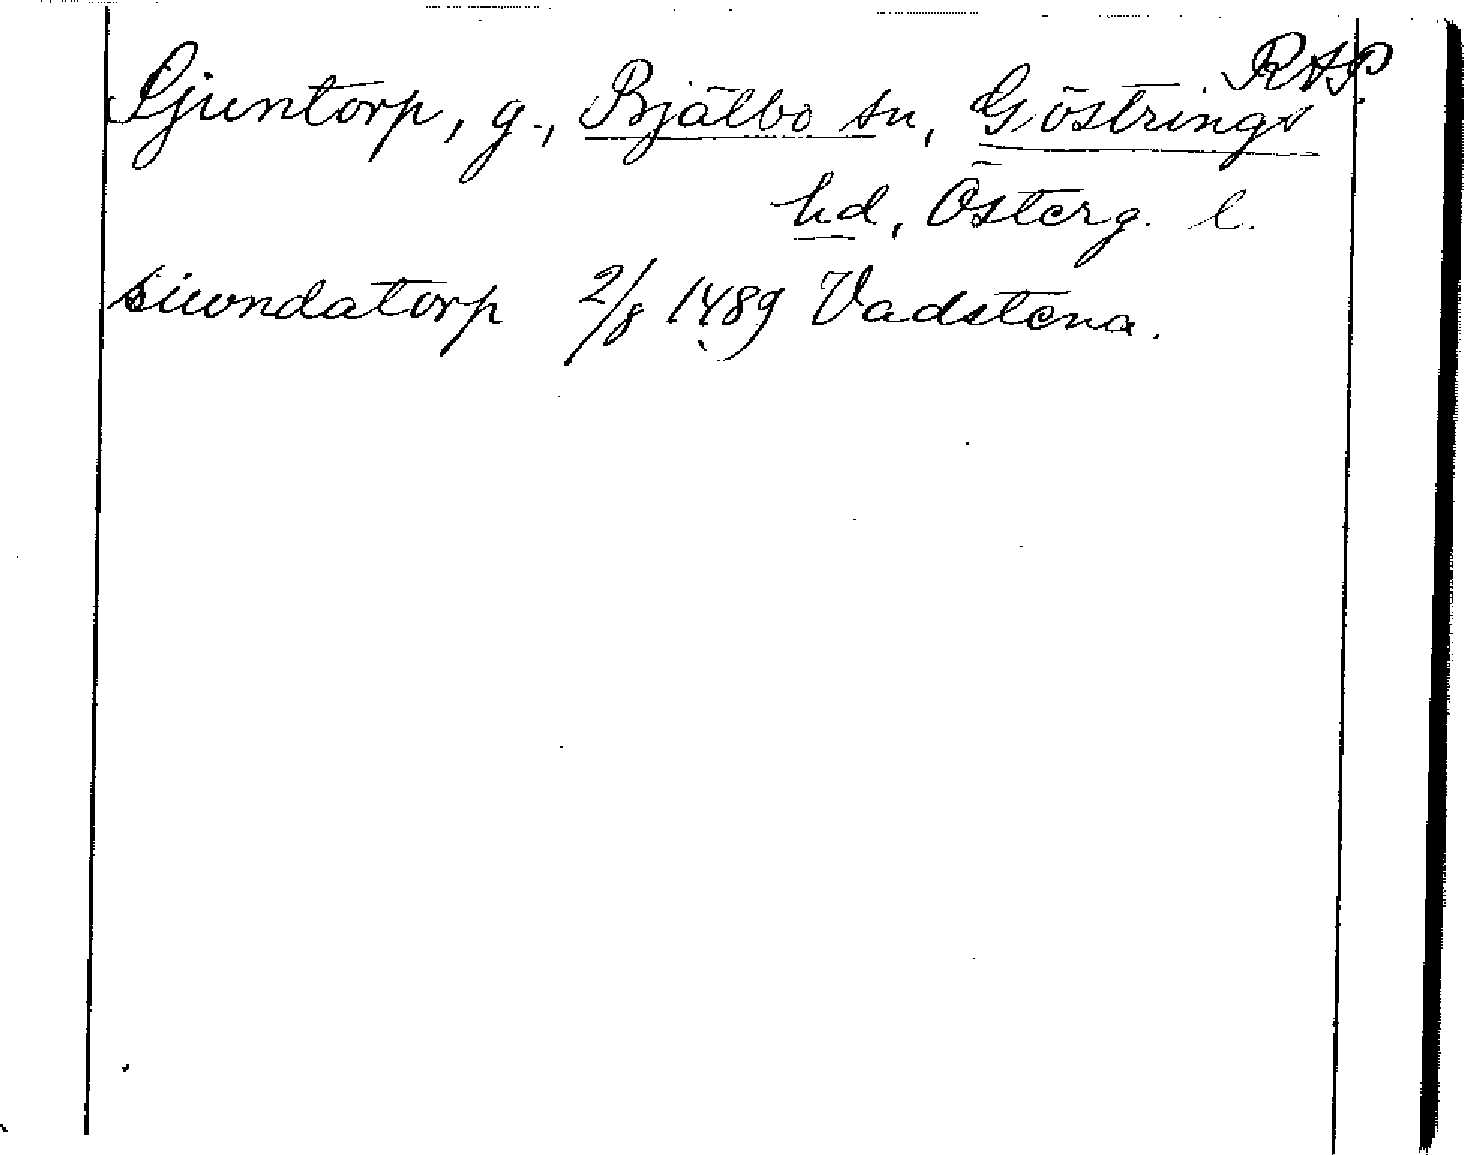 RAP.
Sjuntorp, g., Bjälbo sn, Göstrings
hd, Österg. l.
siwndatorp 2/8 1489 Vadstena.